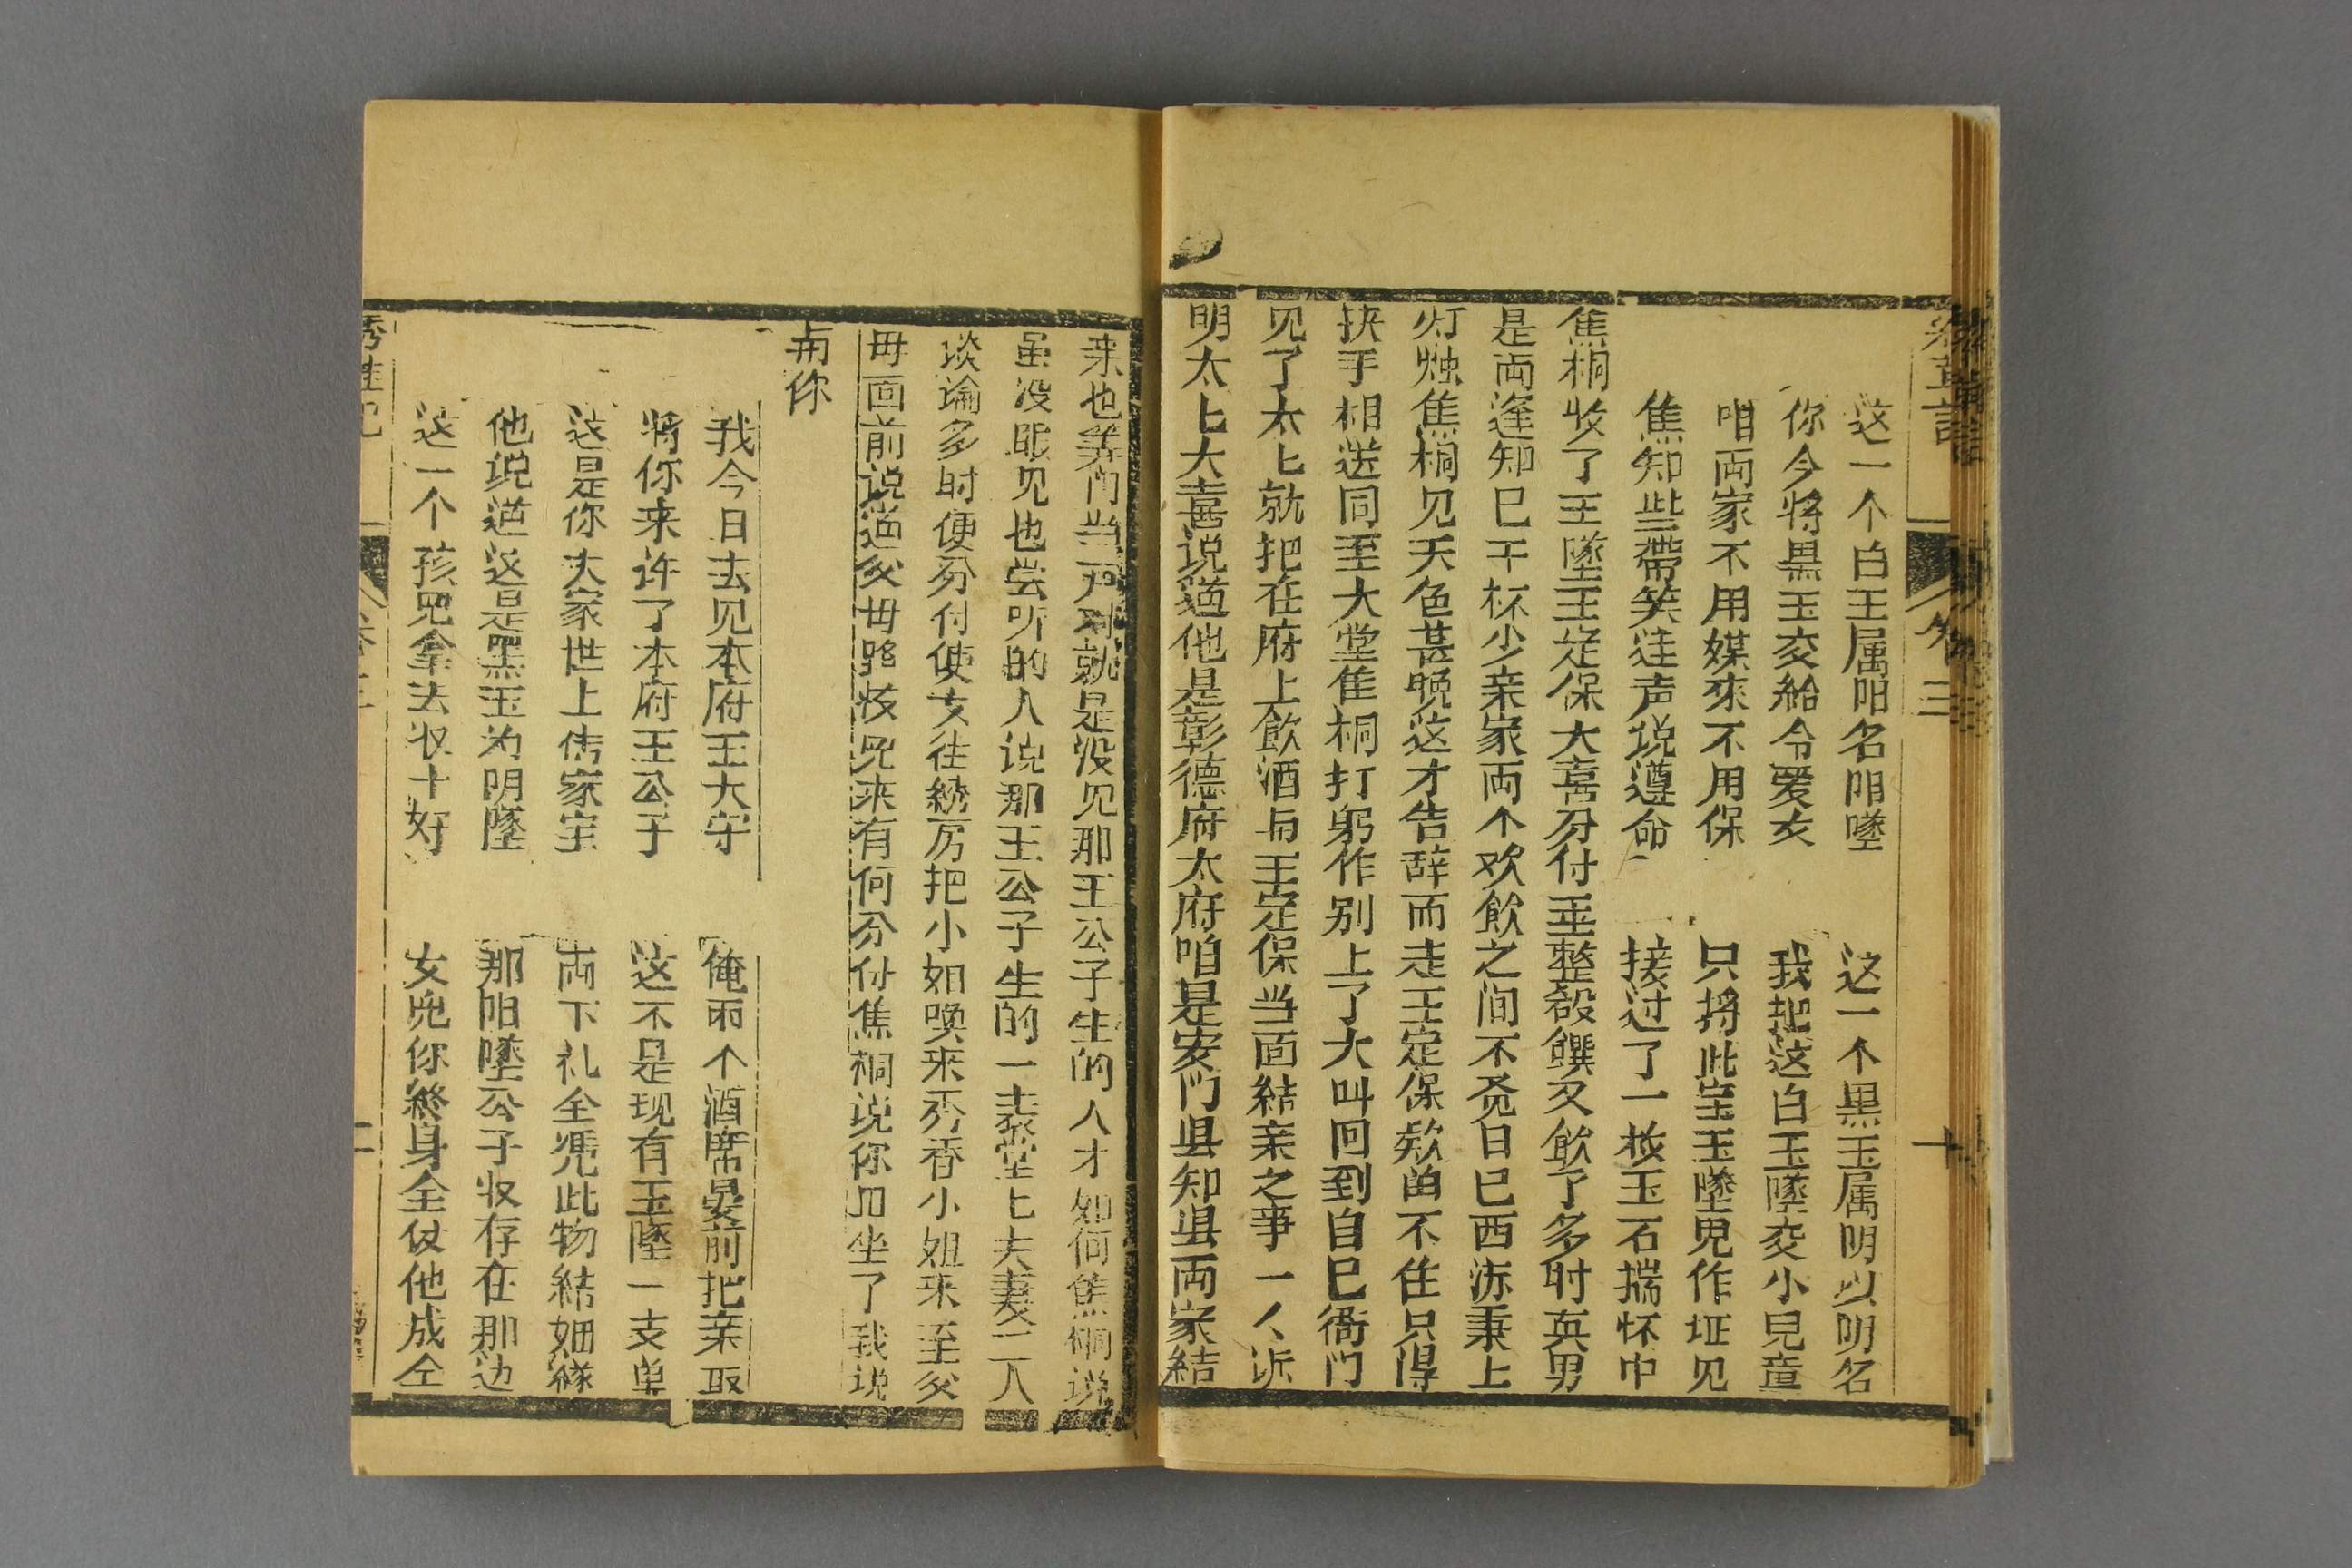 这一个白玉属阳名阳墜 这一个黑玉属阴以阴名
你今将黒玉交給令爱女 我把这白玉墜交小兒童
咱両家不用媒来不用保 只将此宝玉墜児作证见
焦知些帶笑连声说遵命 接过了一枚玉石揣怀中
焦桐收了玉墜王定保大喜分付重整殽饌又飲了多时真男
是両逢知已干杯少亲家両个欢飲之间不觉日已西沥秉上
灯烛焦桐见天色甚晚这才告辞而走王定保欸畄不住只得
挟手相送同至大堂焦桐打躬作别上了大叫回到自已衙門
见了太匕就把在府上飲酒与王定保当面結亲之事一人诉
明太匕大喜说道他是彰德府太府咱是安門县知县両家結
来也筭门当戸对就是没见那王公子生的人才如何焦桐说
虽没眼见也尝听的人说那王公子生的一表堂匕夫妻二人
谈論多时便分付使女往綉房把小如唤来秀香小姐来至父
毋面前说道父毋路技児来有何分付焦桐说你且坐了我说
与你
我今日去见本府王大守 俺両个酒席晏前把亲取
将你来许了本府王公子 这不是现有玉墜一支单
这是你夫家世上传家宝 両下礼全凭此物結姻緣
他说道这是黑玉为阴墜 那阳墜公子収存在那边
这一个孩児拿去収十好 女児你終身全仗他成仝
秀鞋记 卷三 二
卷三 十